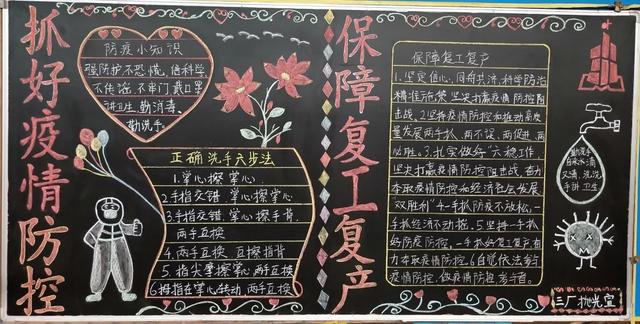 抓好疫情防控
防疫小知识
强防护不恐慌，信科学
不传谣，不串门戴口罩
讲卫生，勤消毒
勤洗手。
正确洗手六步法
1.掌心擦掌心
2.手指交错，掌心擦掌心
3.手指交错，掌心擦手背，
两手互换
4.两手互握，互擦指背
5.指尖摩擦掌心两手互换
6.拇指在掌心转动两手互换
保障复工复产
保障复工复产
1.坚定信心，同舟共济，科学防治
精准施策坚决打赢疫情防控阻
击战.2.坚持疫情防控和推动高质
量发展两手抓，两不误，两促进，两
必胜。3.扎实做好“六稳工作
坚决打赢疫情防控阻击战，奋力
夺取疫情防控和经济社会发展
“双胜利”4.一手抓防疫不放松，一
手抓经济不动摇.5.坚持一手抓
好防疫防控，一手抓好复工复产有
力夺取疫情防控.6.自觉依法参与
疫情防控，做疫情防控参与者。
勤洗手
三厂抛光室